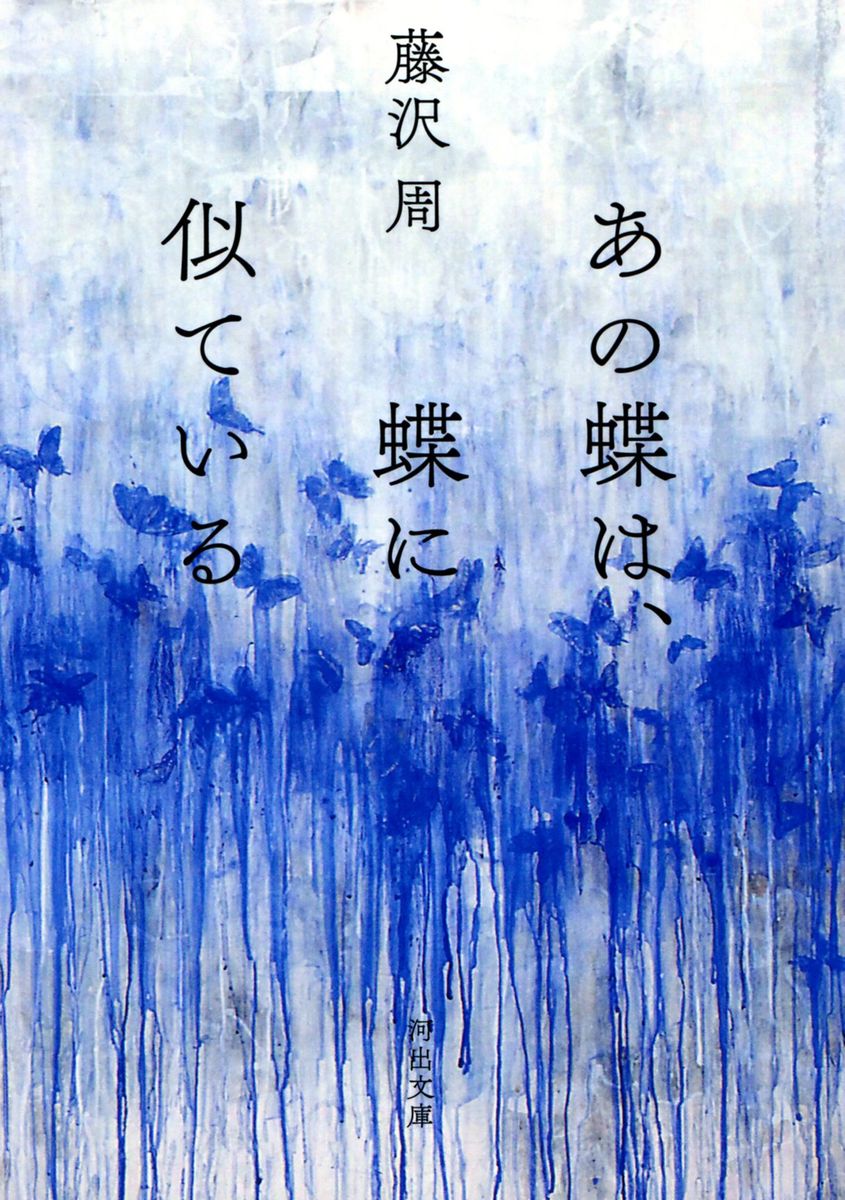 あの蝶は、
蝶に
似ている
藤沢周
河出文庫